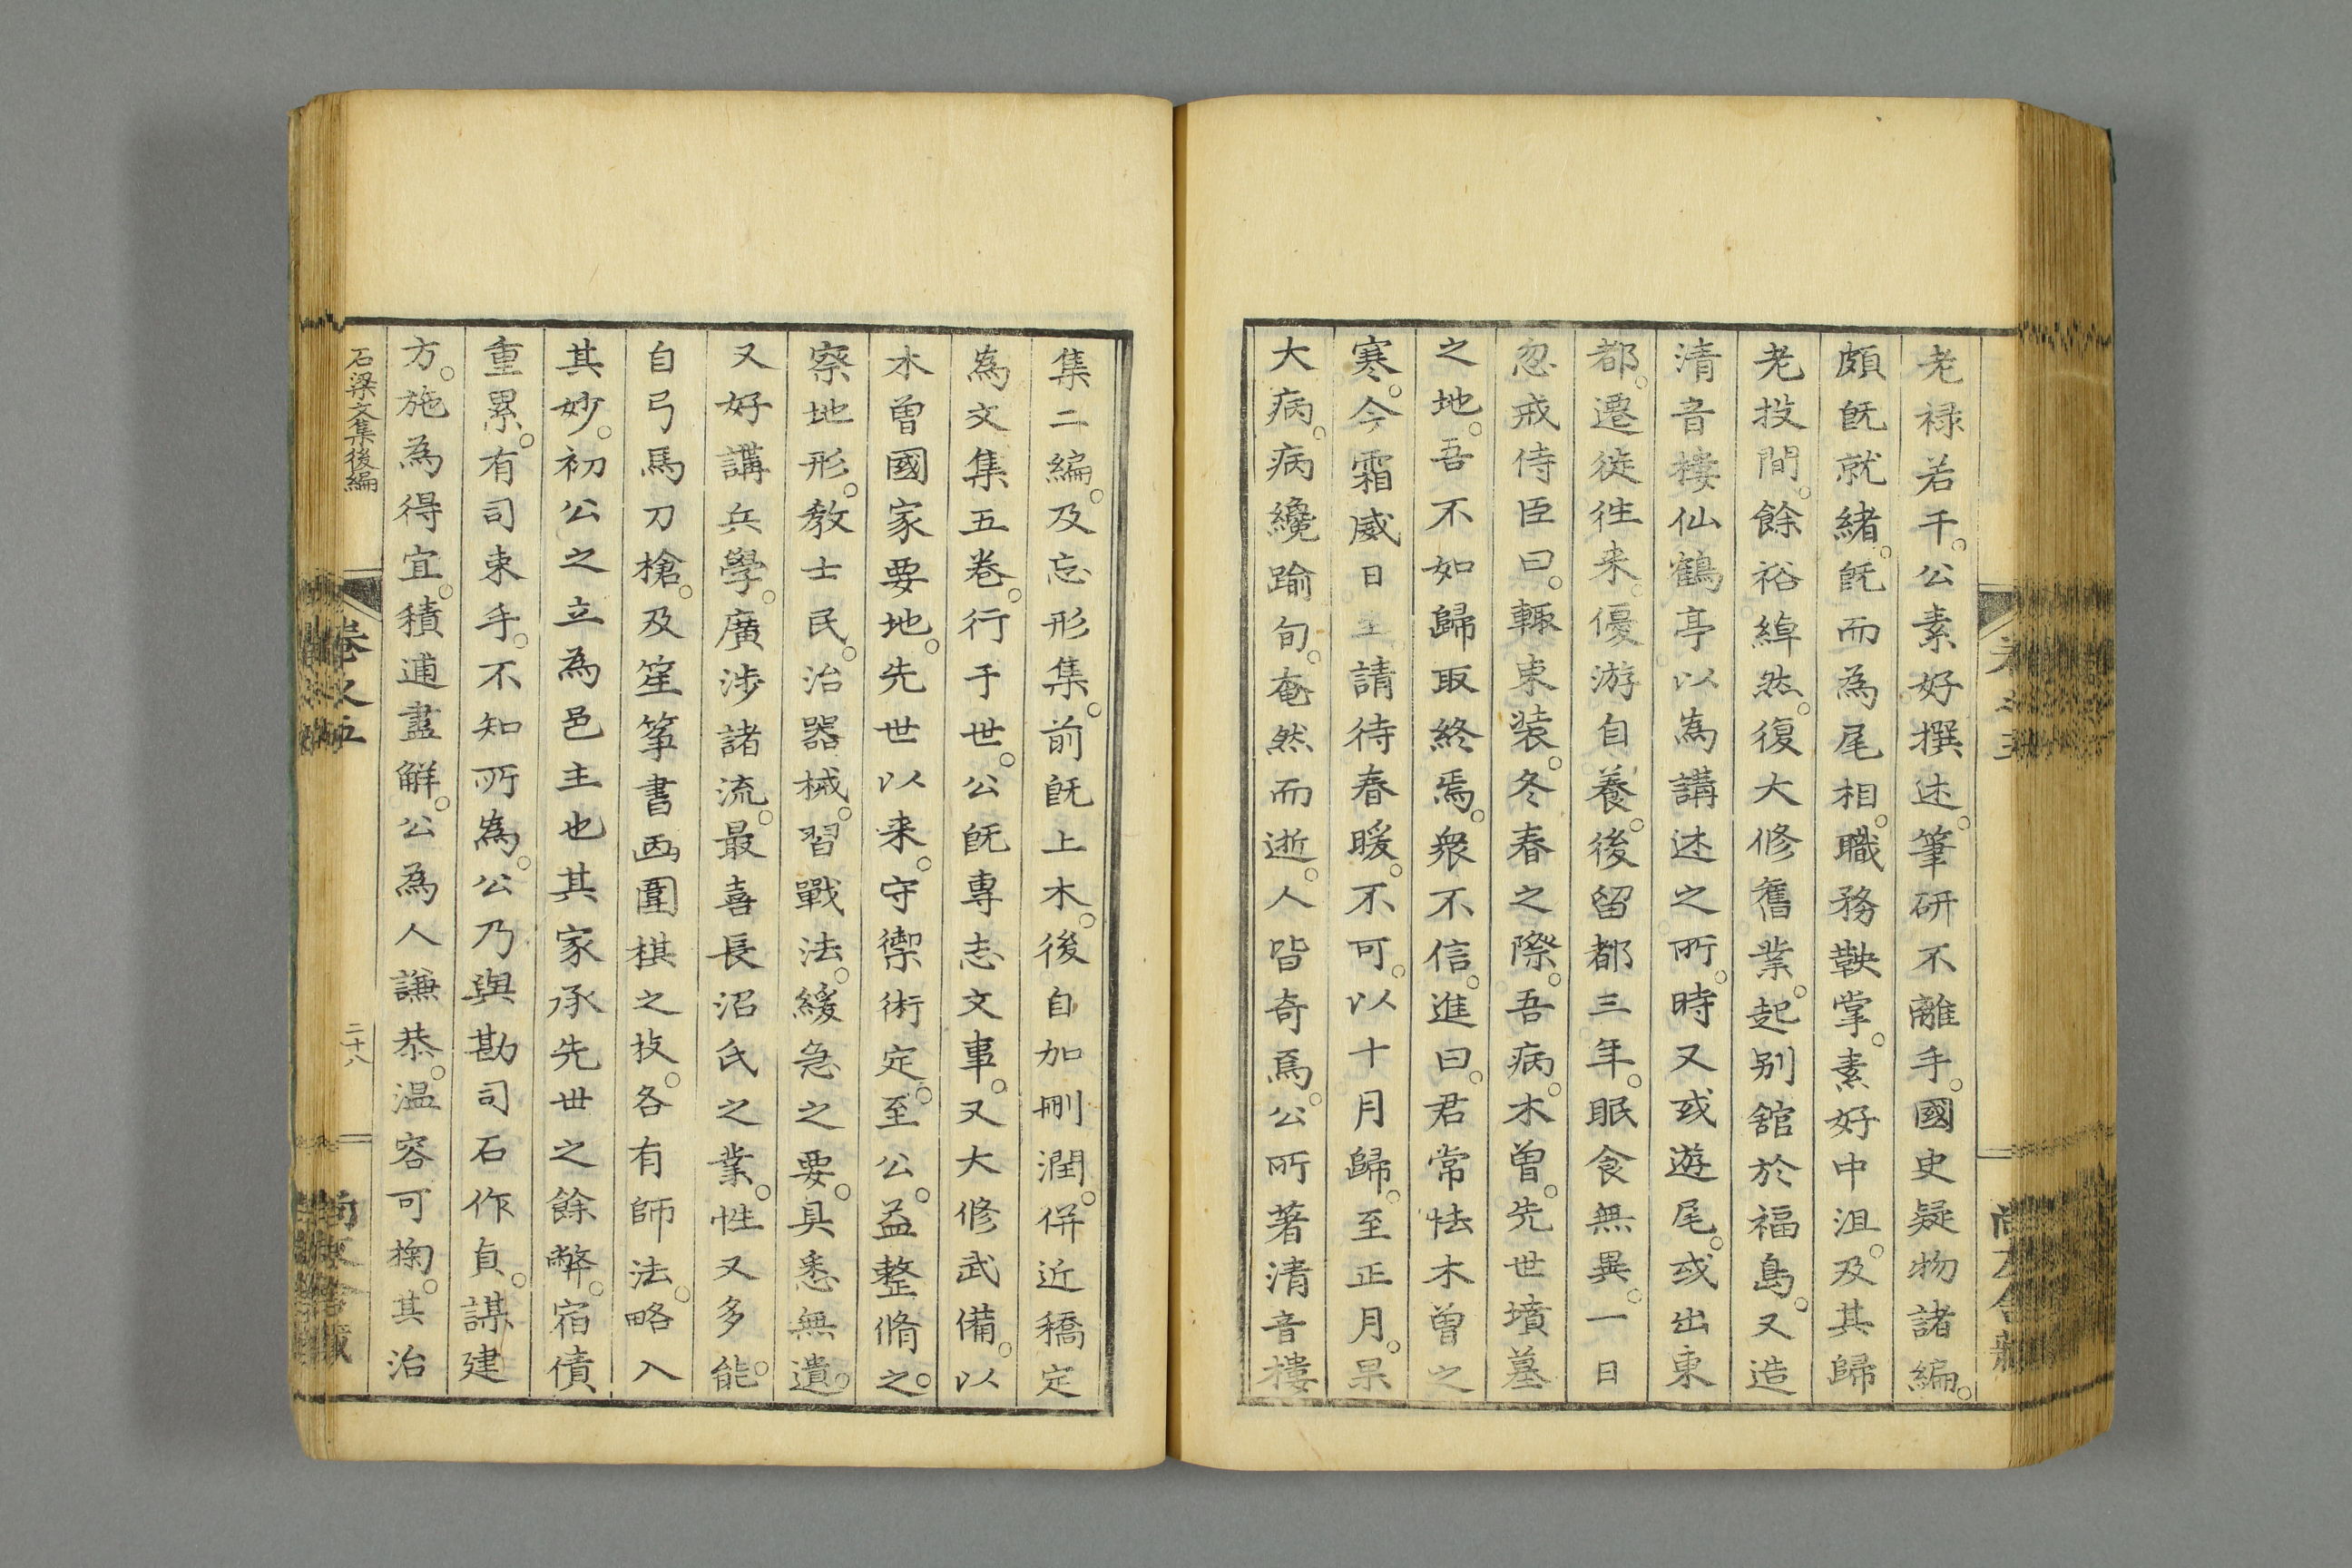 老禄若干。公素好撰述。筆研不離手。國史疑物諸編。
頗既就緒。既而為尾相。職務鞅掌。素好中沮。及其歸
老投間。餘裕綽然。復大修舊業。起別舘於福島。又造
清音樓仙鶴亭以為講述之所。時又或遊尾。或出東
都。遷徙往来。優游自養。後留都三年。眠食無異。一日
忽戒侍臣曰。輙束装。冬春之際。吾病。木曽。先世墳墓
之地。吾不如歸取終焉。衆不信。進曰。君常怯木曽之
寒。今霜威日至。請待春暖。不可。以十月歸。至正月。果
大病。病纔踰旬。奄然而逝。人皆奇焉。公所著清音樓
集二編。及忘形集。前既上木。後自加刪潤。併近稿定
為文集五卷。行于世。公既專志文事。又大修武備。以
木曽國家要地。先世以来。守禦術定。至公。益整脩之。
察地形。教士民。治器械。習戰法。緩急之要。具悉無遺。
又好講兵學。廣涉諸流。最喜長沼氏之業。性又多能。
自弓馬刀槍。及笙箏書画圍棋之技。各有師法。略入
其妙。初公之立為邑主也其家承先世之餘弊。宿債
重累。有司束手。不知所為。公乃與勘司石作貞。謀建
方。施為得宜。積逋盡解。公為人謙恭。温容可掬。其治
石梁文集後編
卷之五
二十八